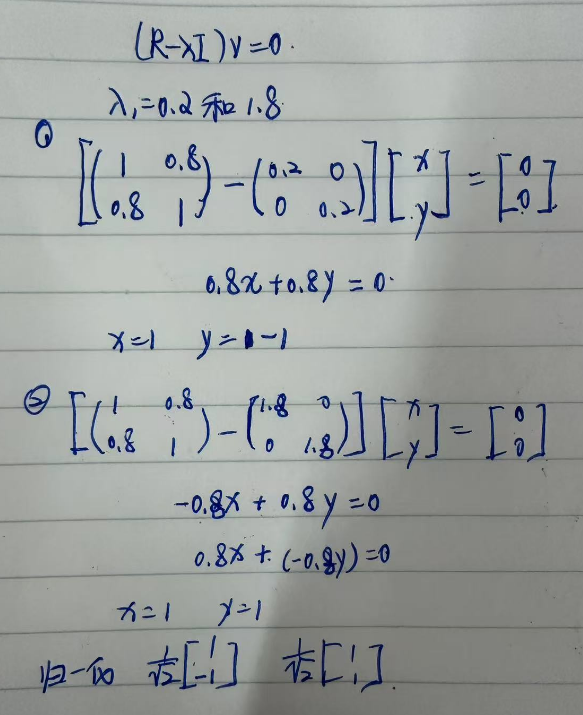 (R-λI)v=0.
λ₁=0.2 和 1.8
① [(1 0.8; 0.8 1) - (0.2 0; 0 0.2)] [x; y] = [0; 0]
0.8x+0.8y=0.
x=1 y=-1
② [(1 0.8; 0.8 1) - (1.8 0; 0 1.8)] [x; y] = [0; 0]
-0.8x + 0.8y=0
0.8x + (-0.8y)=0
x=1 y=1
归一化 1/√2 [1; -1] 1/√2 [1; 1].